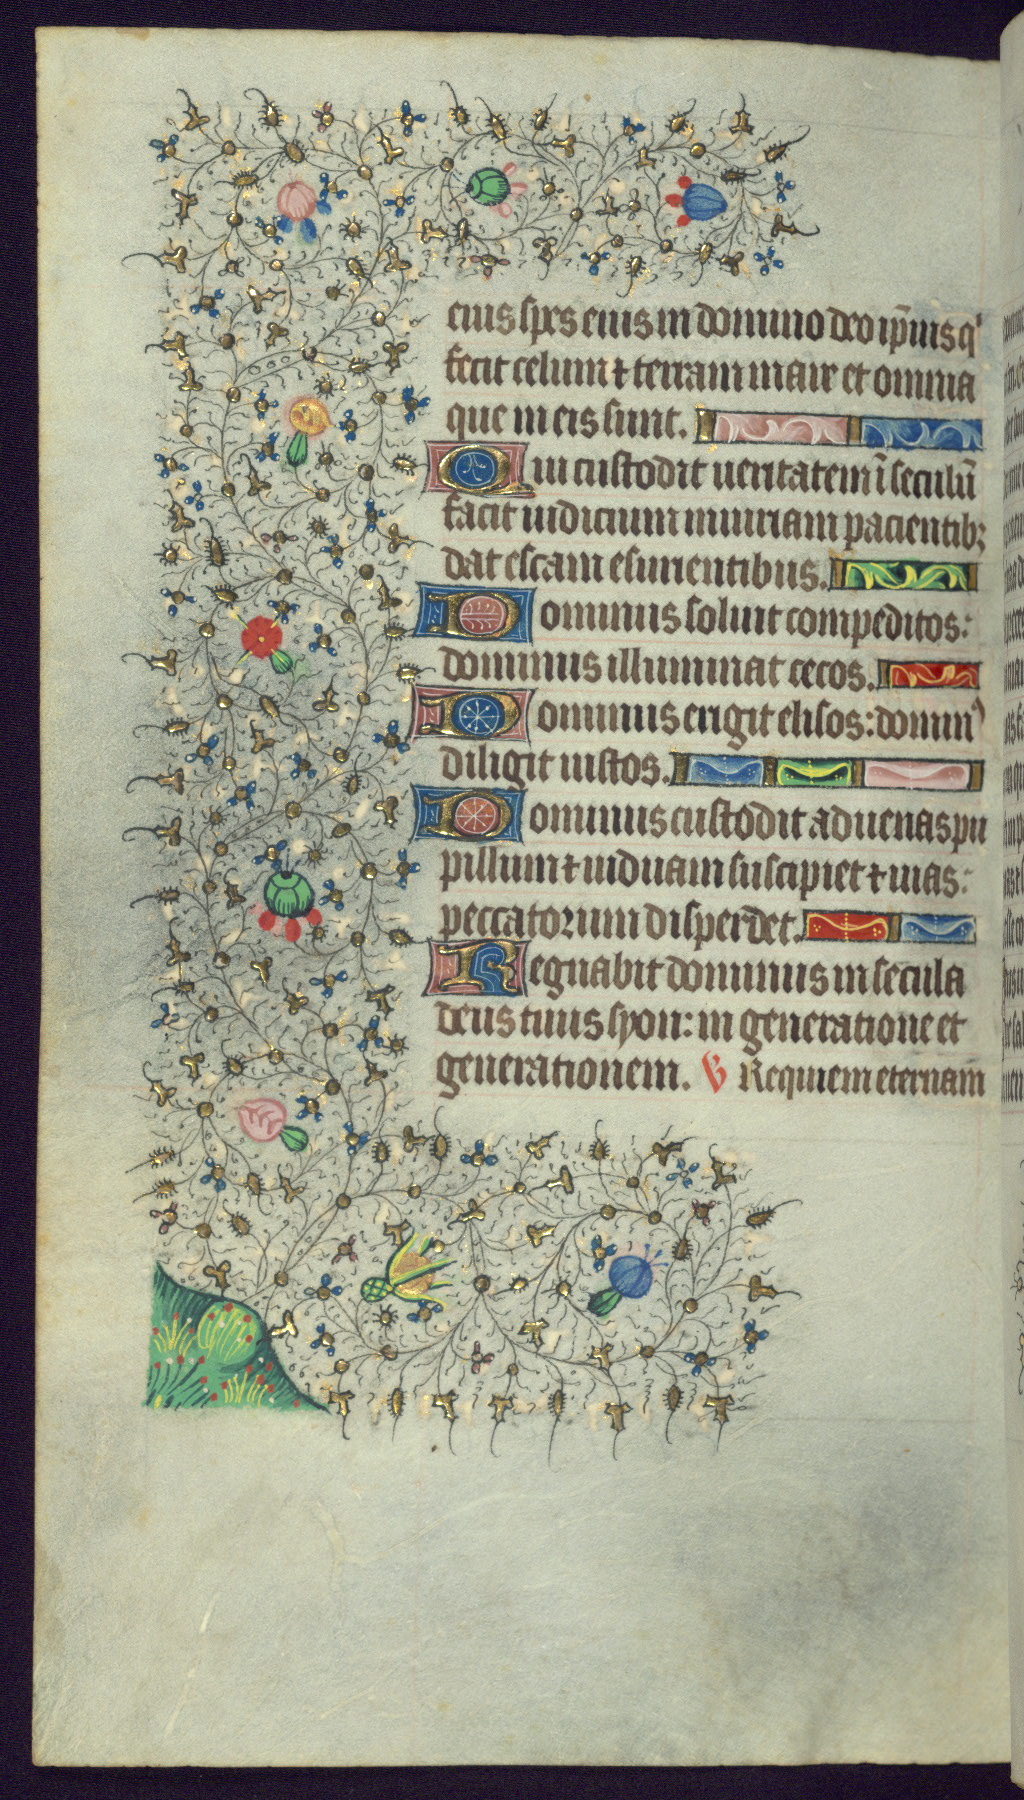 eius spes eius in domino deo ip̄ius qͥ
fecit celum ⁊ terram mare et omnia
que in eis sunt.
Qui custodit ueritatem ī seculū
facit iudicium iniuriam pacientibꝫ
dat escam esurientibus.
Dominus soluit compeditos:
dominus illuminat cecos.
Dominus erigit elisos: dominꝰ
diligit iustos.
Dominus custodit aduenas pu
pillum ⁊ uiduam suscipiet ⁊ uias:
peccatorum disperdet.
Regnabit dominus in secula
deus tuus syon: in generatione et
generationem. Requiem eternam